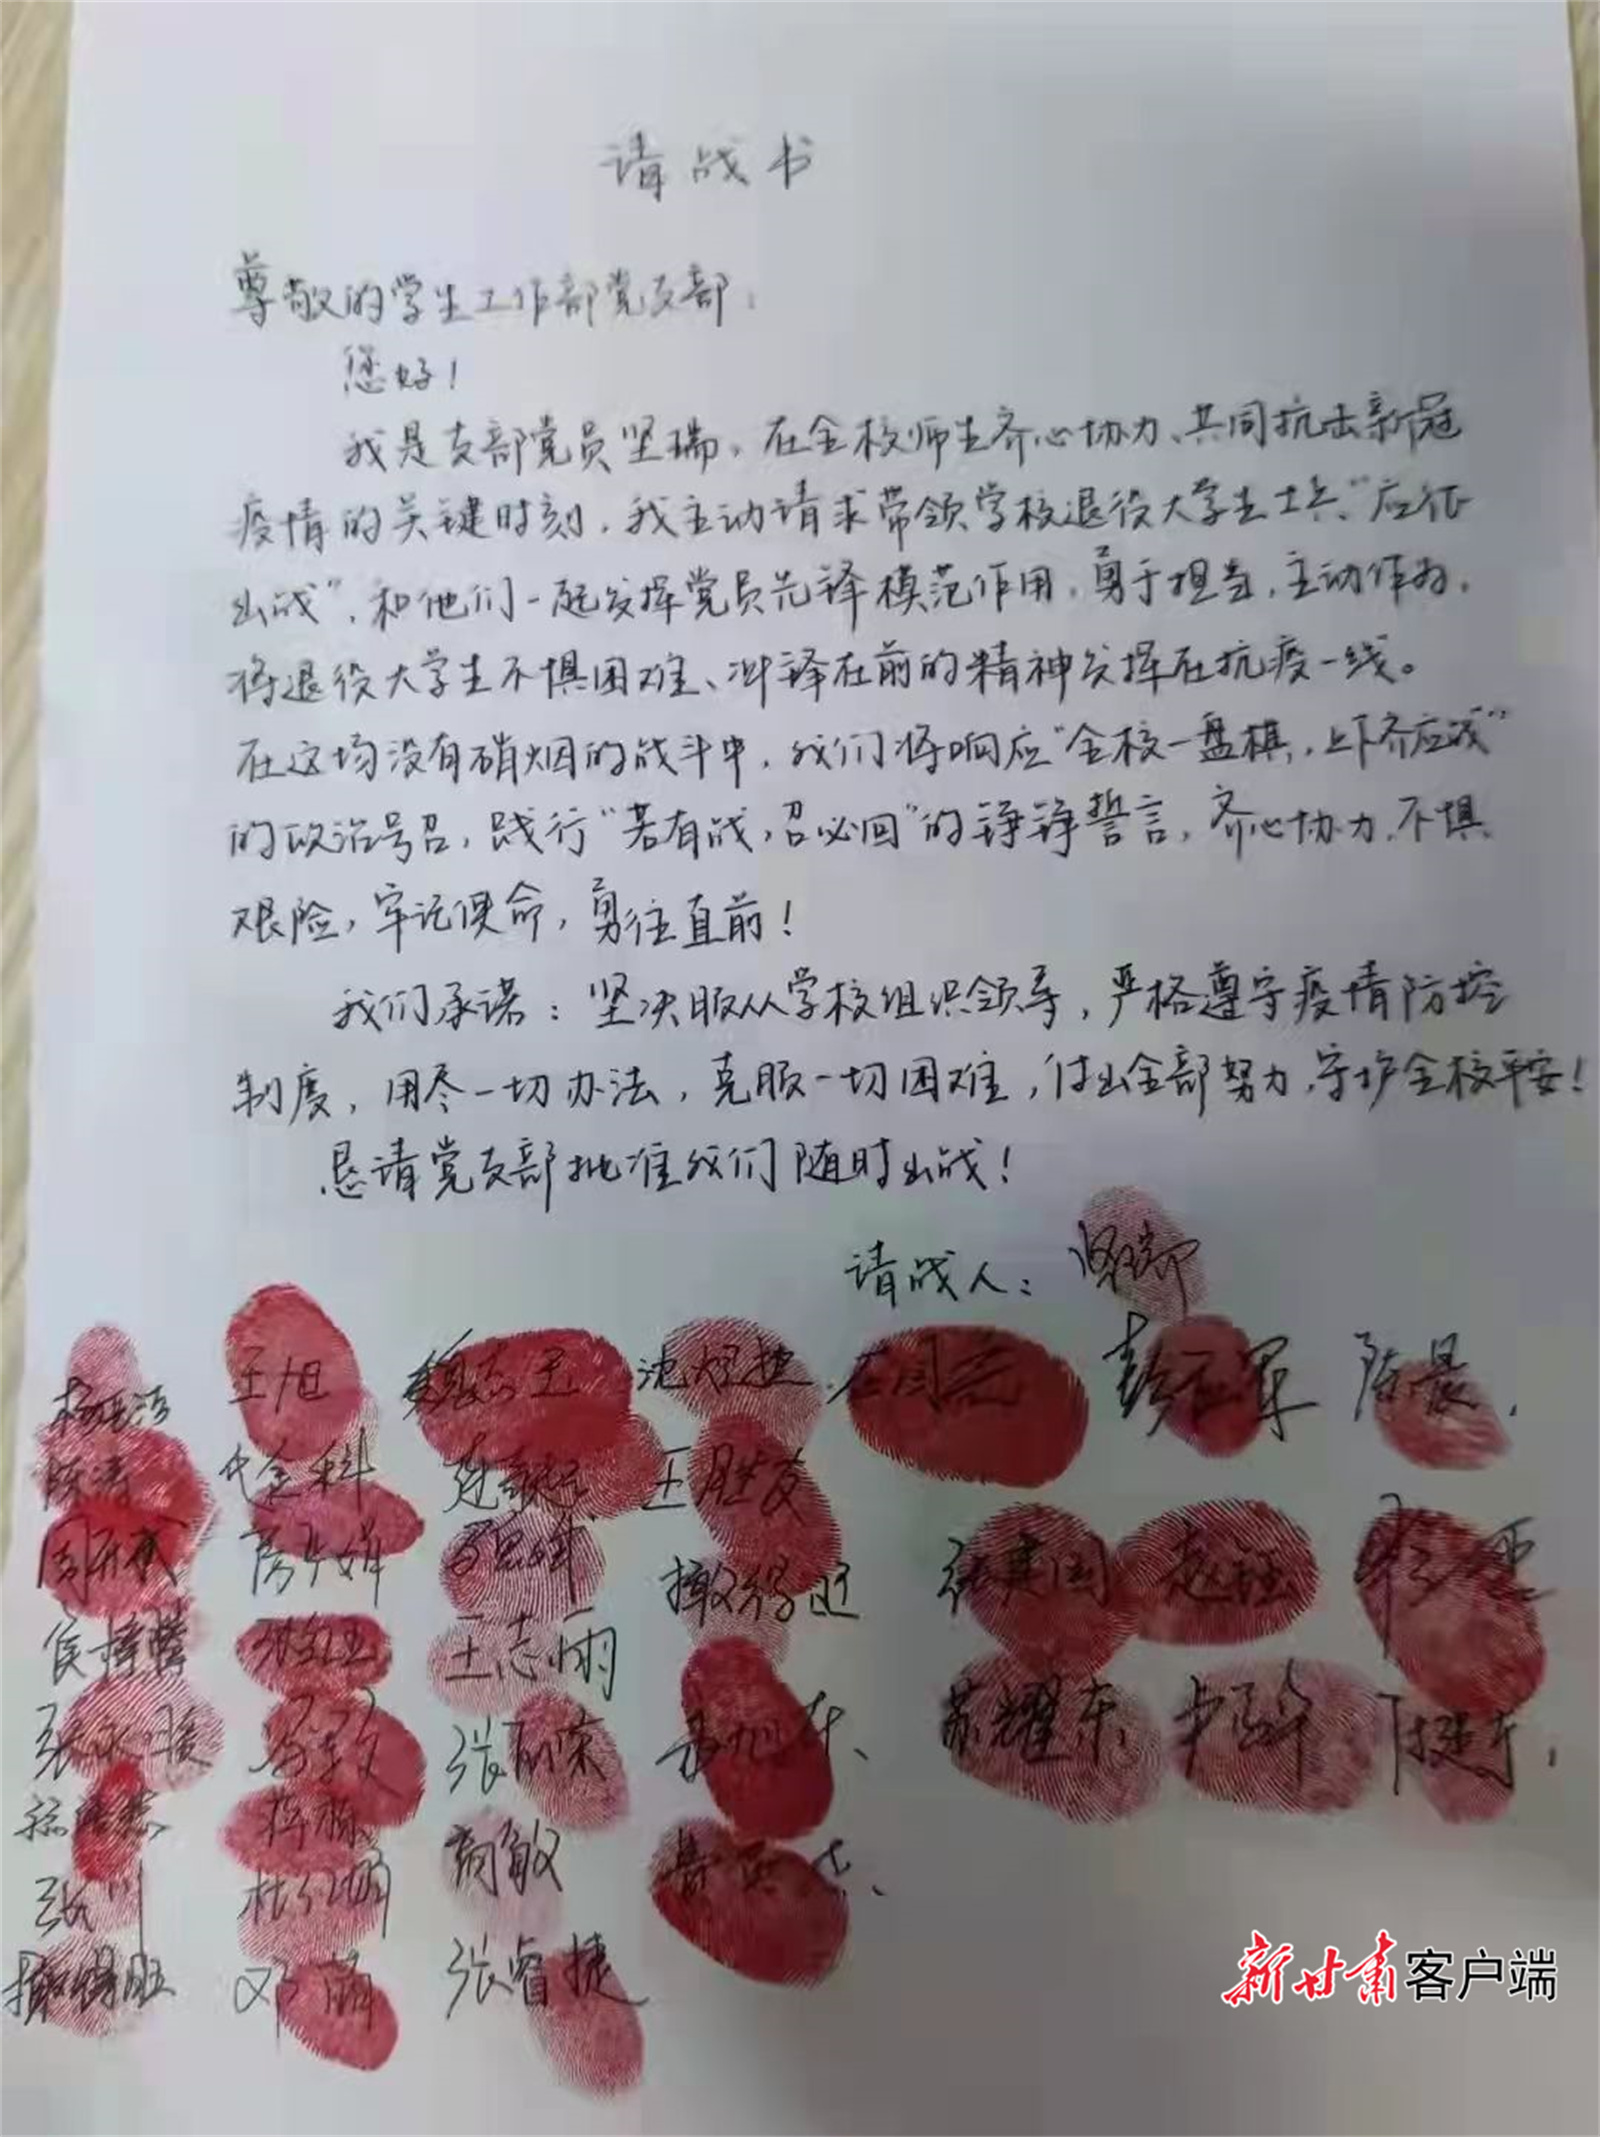 请战书
尊敬的学生工作部党支部：
您好！
我是支部党员坚瑞，在全校师生齐心协力、共同抗击新冠
疫情的关键时刻，我主动请求带领学校退役大学生士兵“应征
出战”，和他们一起发挥党员先锋模范作用，勇于担当，主动作为，
将退役大学生不惧困难、冲锋在前的精神发挥在抗疫一线。
在这场没有硝烟的战斗中，我们将响应“全校一盘棋，上下齐应战”
的政治号召，践行“若有战，召必回”的铮铮誓言，齐心协力、不惧
艰险，牢记使命，勇往直前！
我们承诺：坚决服从学校组织领导，严格遵守疫情防控
制度，用尽一切办法，克服一切困难，付出全部努力，守护全校平安！
恳请党支部批准我们随时出战！
请战人：坚瑞
王旭 陈晨
陈涛 代金科 王胜友
张建国 赵钰
王志雨
苏耀东
张丽荣
蒋
张川
张睿捷
新甘肃客户端